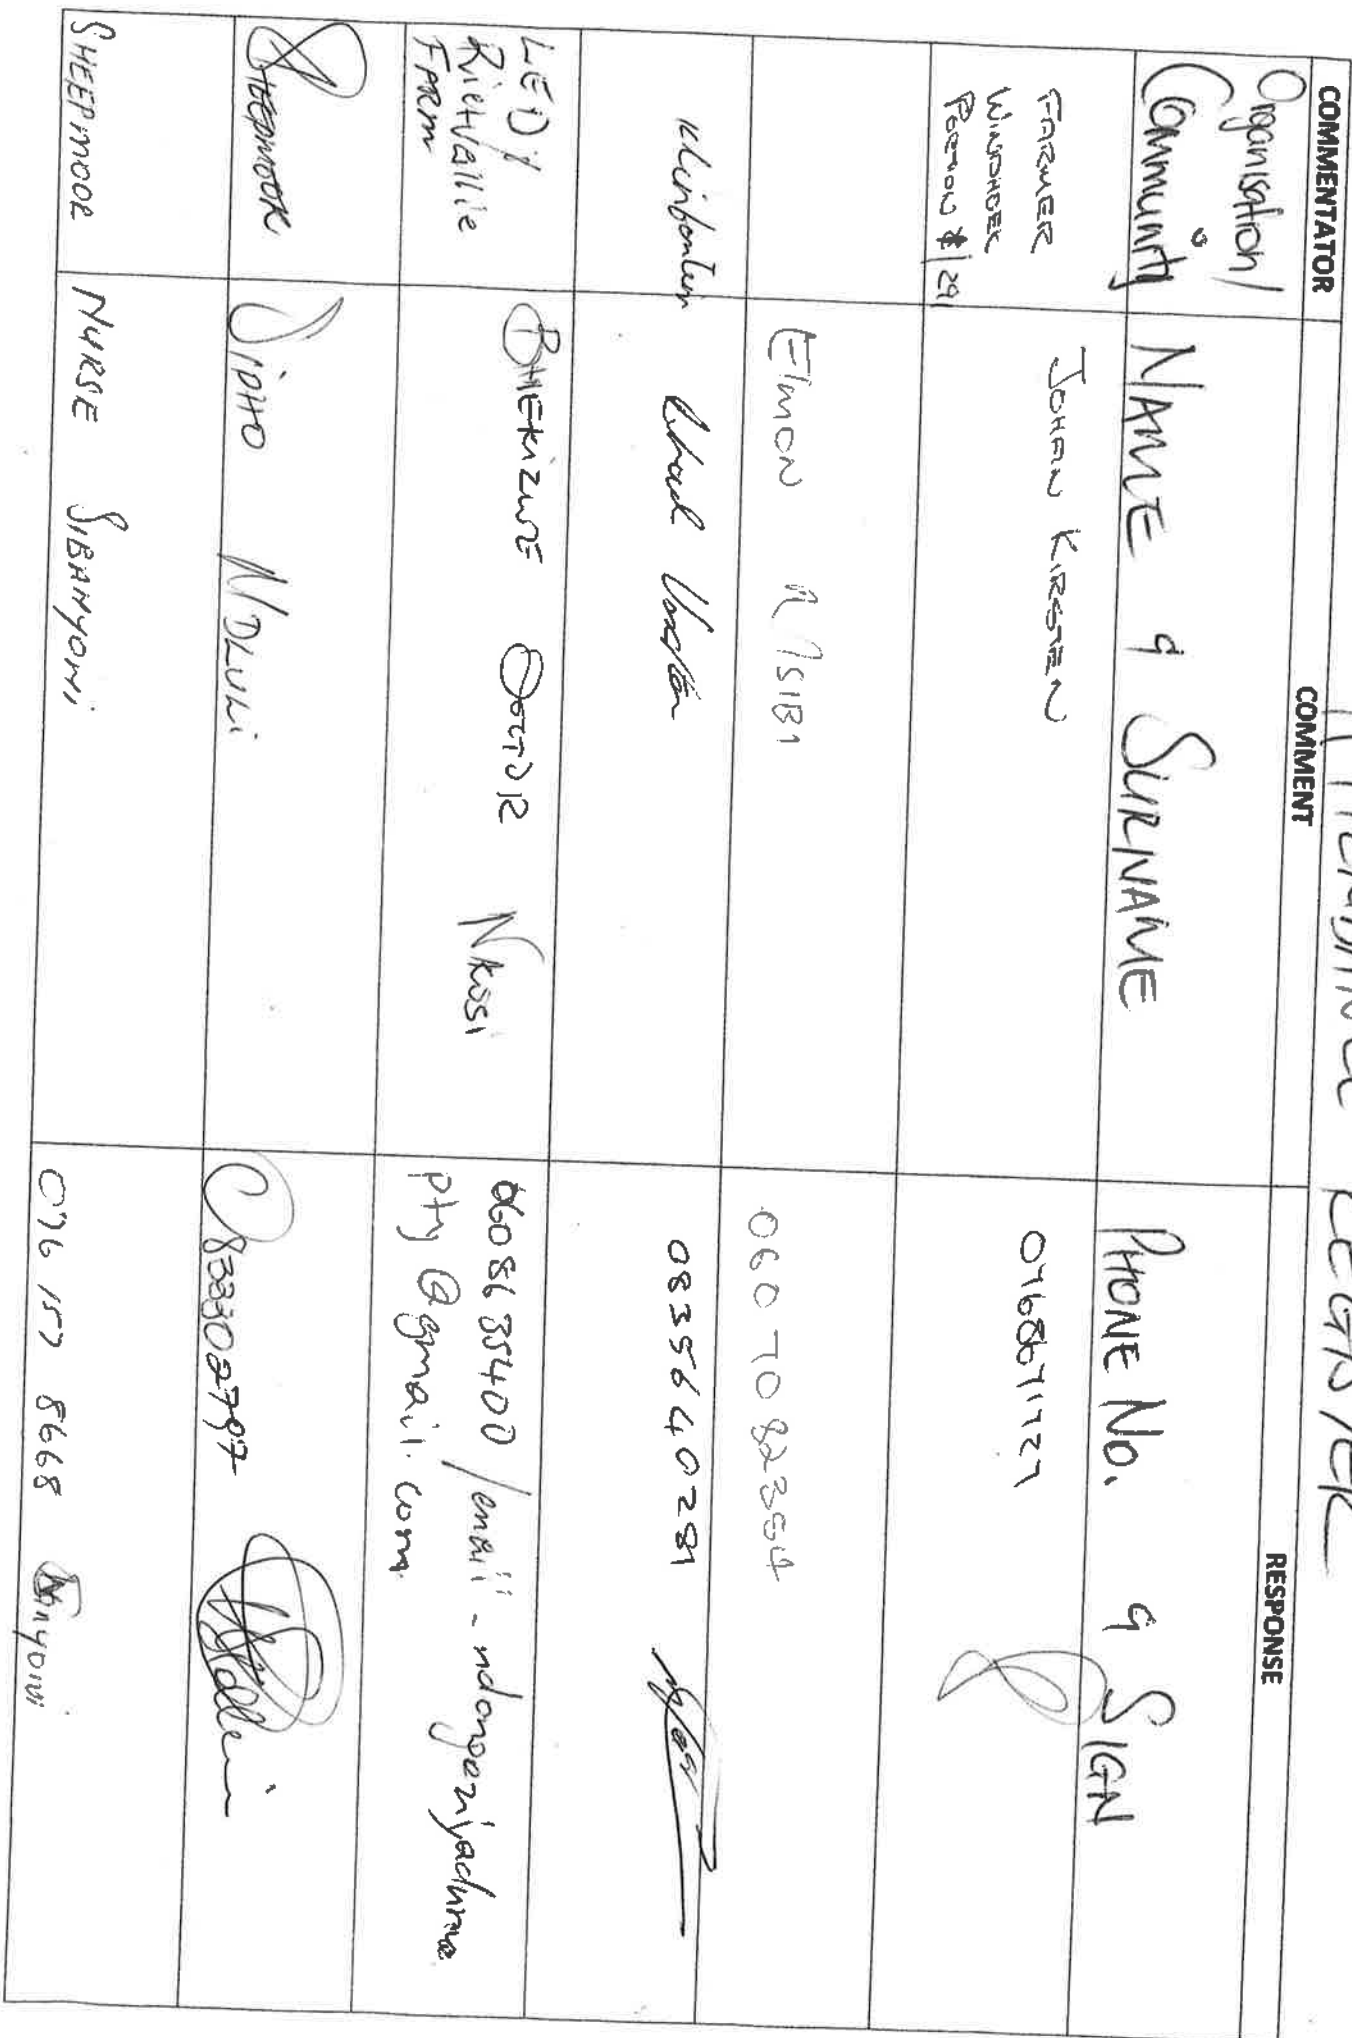 ATTENDANCE REGISTER
COMMENTATOR COMMENT RESPONSE
Organisation/
Community NAME & SURNAME PHONE No. & SIGN
FARMER
WINDHOEK
PORTION /291
JOHAN KIRSTEN
Elmon
060 70 82354
Klipfontein
0835640281
LED/
Rietvallie
FARM
BHEKIZWE DOCTOR Nkosi
0608635400 / email - ndongeziyaduma
pty @gmail.com
SHEEPMOOR SIPHO NDLULI 0833302797
SHEEPMOOR NURSE SIBANYONI 076 157 8668